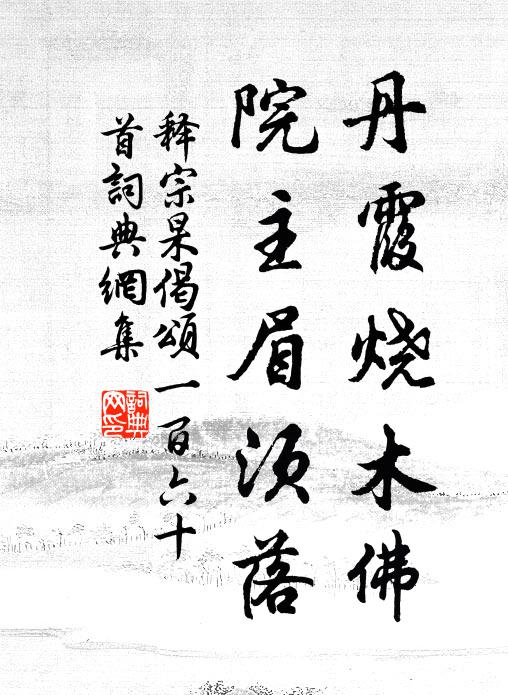 丹霞烧木佛
院主眉须落
释宗杲偈颂一百六十
首词典網集
詞典
网印